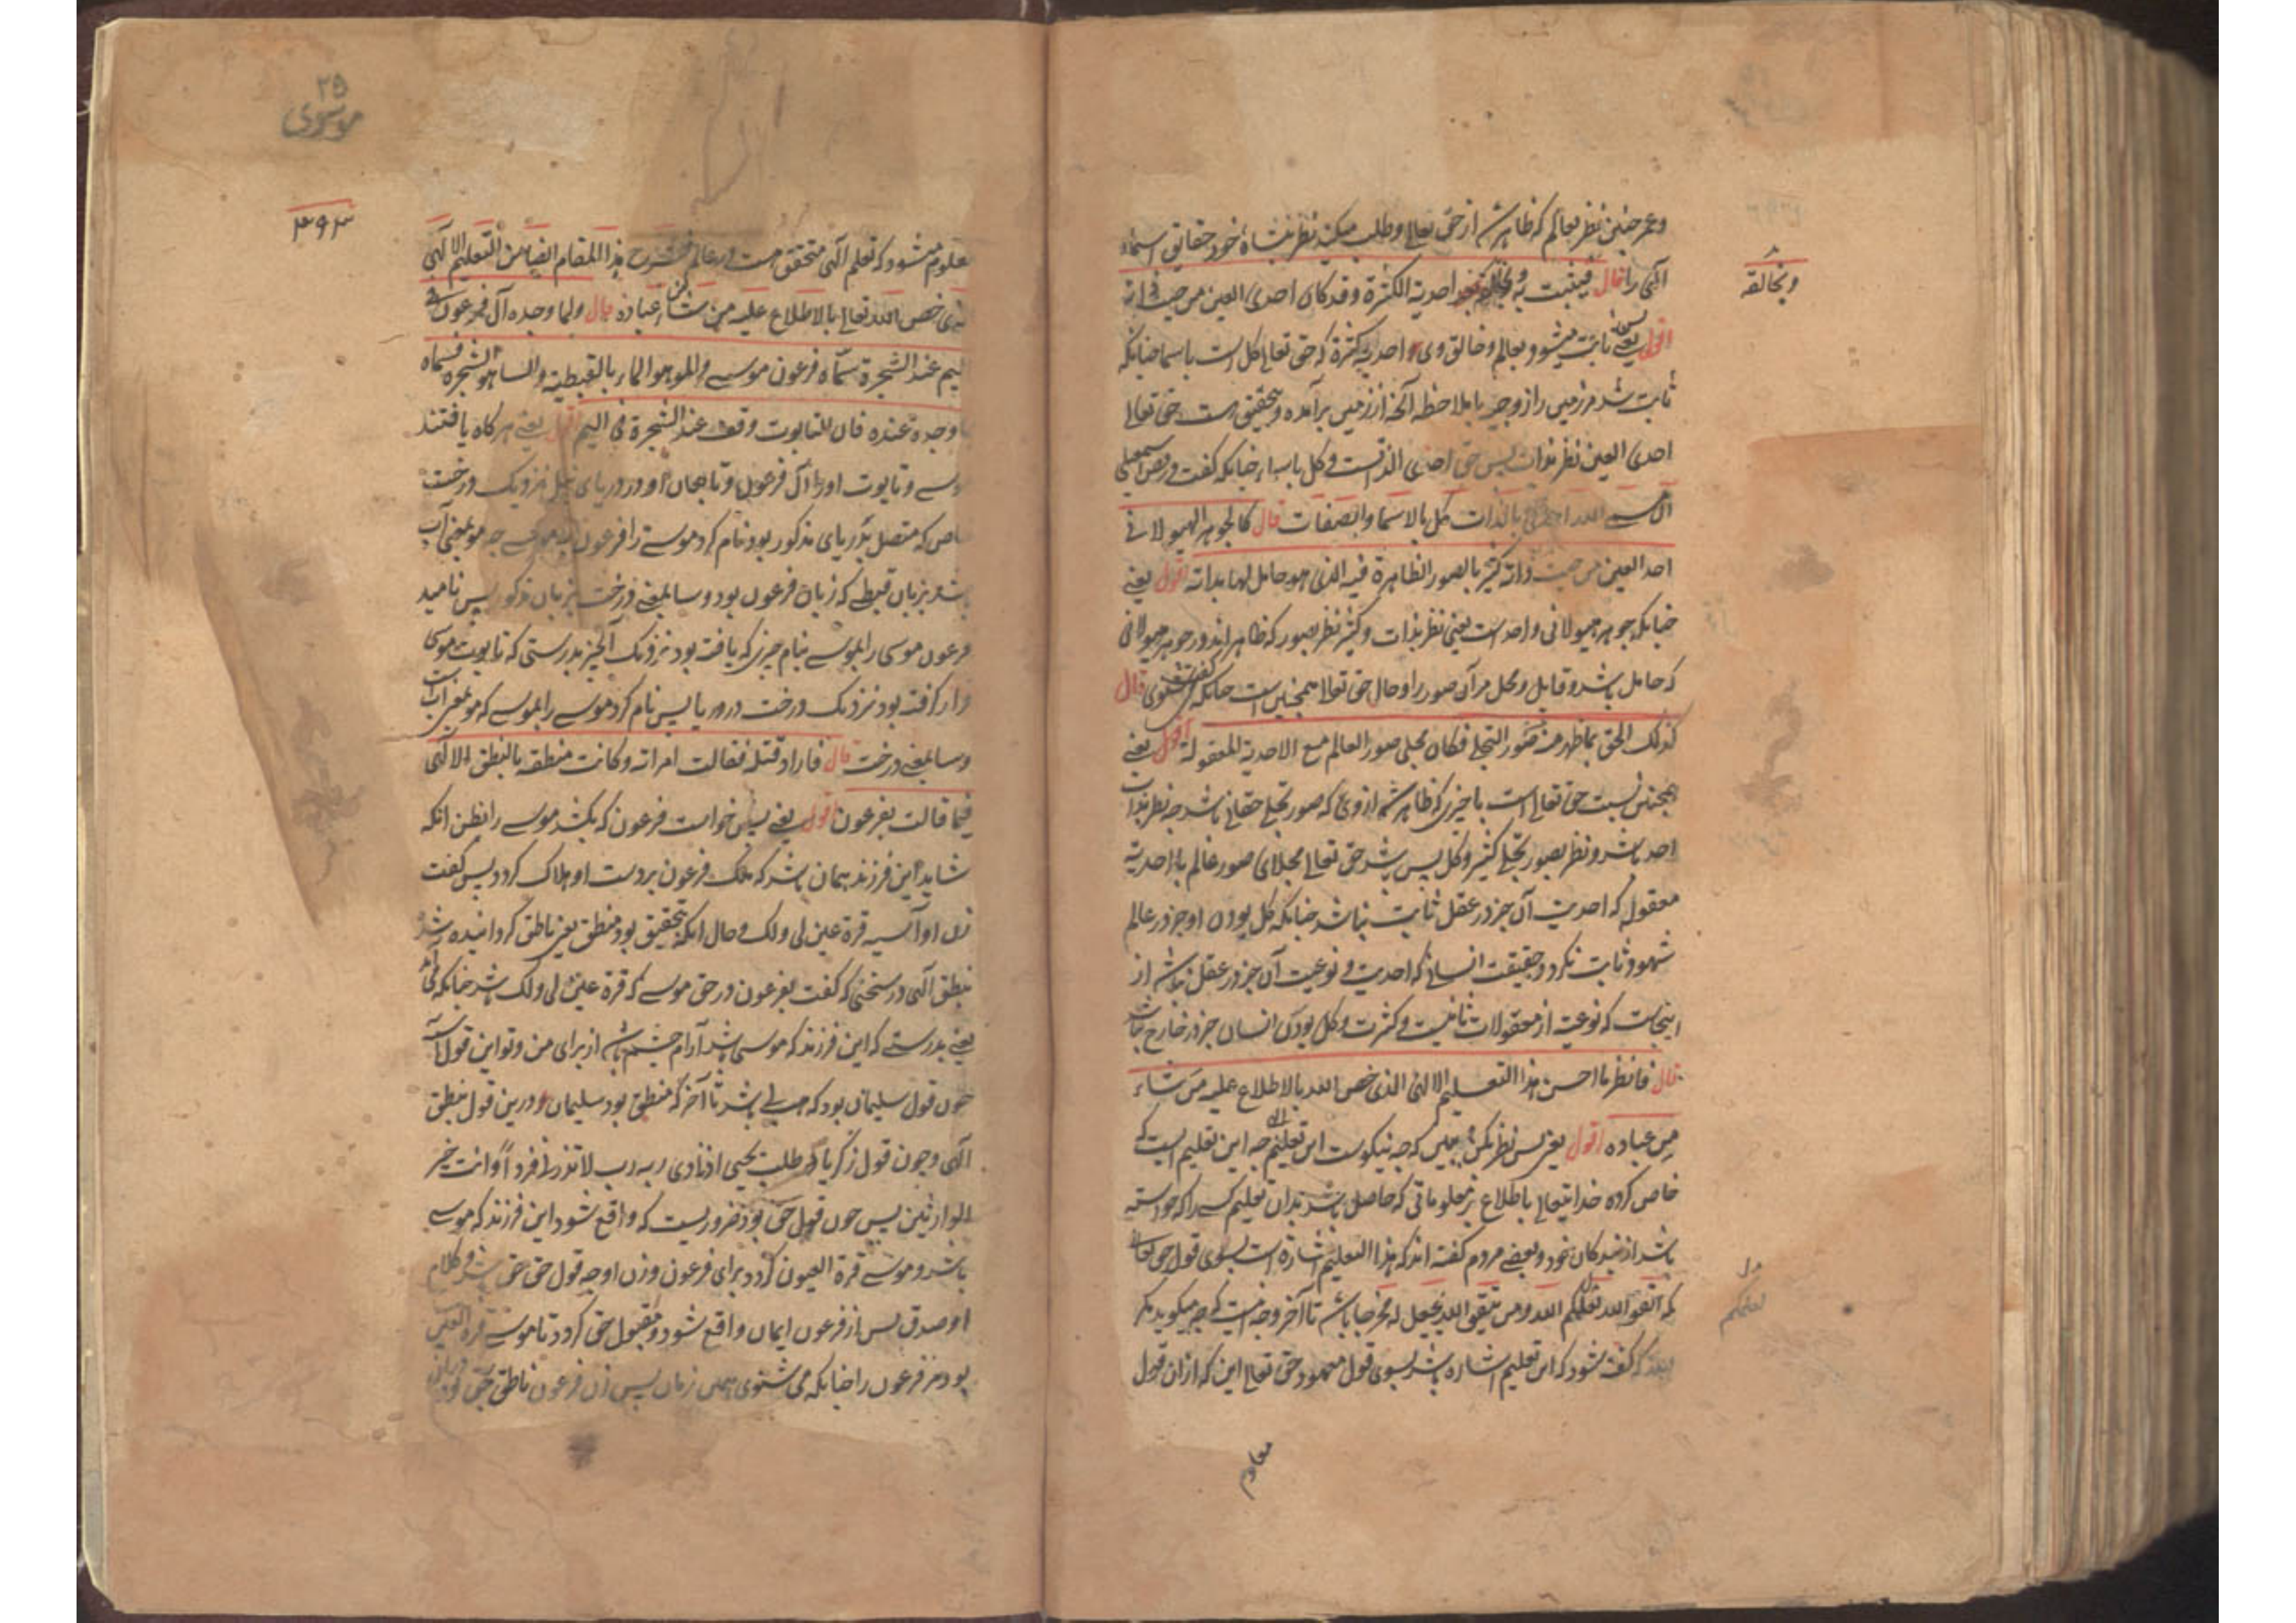 و همچنین نظر بعالم که ظاهر شد از حق تعالی و طلب میکند نظر بنشاة خود حقایق اسماء
الهی را قال فیثبت به و بخالقه احدیة الکثرة و قد کان احدی العین من حیث ذاته
و بخالقه
اقول یعنے پس ثابت میشود بعالم و خالق وی احدیه کثرة که حق تعالی کل است باسما چنانکه
ثابت شد مر زمین را زوجیه بملاحظه آنچه از زمین برآمده و بتحقیق است حق تعالی
احدی العین نظر بذات پس حق احدی الذاتست و کل باسماء چنانکه گفت در فص اسمعیلی
ان مسمی الله احدی بالذات کل بالاسما و الصفات قال کالجوهر الهیولانی
احد العین من حیث ذاته کثیر بالصور الظاهرة فیه الذی هو حامل لها بذاته اقول یعنے
چنانکه جوهر هیولانی واحد است یعنی نظر بذات و کثیر نظر بصور که ظاهراند در جوهر هیولانی
که حامل باشد و قابل و محل مر آن صور را و حال حق تعالی همچنین است چنانکه می شنوی قال
کذلک الحق بما ظهر منه من صور التجلی فکان مجلی صور العالم مع الاحدیة المعقولة اقول یعنے
همچنین نسبت حق تعالی است با چیزی که ظاهر شد از وی که صور تجلی حقانی باشد چه نظر بذات
احد باشد و نظر بصور تجلی کثیر و کل پس باشد حق تعالی مجلای صور عالم با احدیة
معقوله که احدیت آن جز در عقل ثابت نباشد چنانکه کل بودن او جز در عالم
شهود ثابت نگردد و حقیقت انسانی که احدیت و نوعیت آن جز در عقل نباشد از
اینجاست که نوعیة از معقولات ثانیست و کثرت و کل بودن انسان جز در خارج نباشد
قال فانظر ما احسن هذا التعلیم الالهی الذی خص الله بالاطلاع علیه من شاء
من عباده اقول یعنی پس نظر بکن ببین که چه نیکوست این تعلیم چه این تعلیم ایست که
خاص کرده خدایتعالی باطلاع بر معلوماتی که حاصل باشد بدان تعلیم کسی را که خواسته
باشد از بندگان خود و بعضی مردم گفته اند که هذا التعلیم اشارة است بسوی قول حق تعالی
که اتقوا الله یعلمکم الله و من یتقی الله یجعل له مخرجا باشد تا آخر وجه نیست که چه میگوید مگر
یعلمکم
که گفته شود که این تعلیم اشاره باشد بسوی قول معهود حق تعالی این که ازان قول
معلوم
۳۵
موسوی
۳۹۳
معلوم میشود که تعلیم الهی متحقق هست در عالم هذا المقام ایضا من التعلیم الالهی
الذی خص الله تعالی بالاطلاع علیه من شاء من عباده قال و لما وجده آل فرعون فی
الیم عند الشجرة سمّاه فرعون موسی و المو هو الماء بالقبطیة و السا هو الشجرة فسماه
بما وجده عنده فان التابوت وقف عند الشجرة فی الیم اقول یعنے هرگاه یافتند
موسے و تابوت او را آل فرعون در دریای نیل نزدیک درخت
خاص که متصل بدریای مذکور بود نام کرد موسے را فرعون بموسے چه مو بمعنی آب
باشد بزبان قبطے که زبان فرعون بود و سا بمعنے درخت بزبان مذکور پس نامید
فرعون موسی را بموسے بنام چیزی که یافت بود نزدیک آنچیز بدرستی که تابوت موسی
قرار گرفته بود نزدیک درخت در دریا پس نام کرد موسے را بموسے که مو بمعنی آب است
و سا بمعنے درخت قال فاراد قتله فقالت امراته و کانت منطقه بالنطق الالهی
فیما قالت بفرعون اقول یعنے پس خواست فرعون که بکشد موسے را بظن آنکه
شاید این فرزند همان باشد که ملک فرعون بردست او هلاک گردد پس گفت
زن او آسیه قرة عین لی و لک و حال آنکه بتحقیق بود منطق یعنی ناطق گردانیده شد
بنطق الهی در سخنی که گفت بفرعون در حق موسے که قرة عین لی و لک باشد چنانکه
یعنے بدرستے که این فرزند که موسی باشد آرام چشم باشد از برای من و تو این قول آسیه
چون قول سلیمان بود که هب لی باشد تا آخر که منطق بود سلیمان در این قول بنطق
الهی و چون قول زکریا که در طلب یحیی اذ نادی ربه رب لا تذرنی فردا و انت خیر
الوارثین پس چون قول حق بود ضروریست که واقع شود این فرزند که موسے
باشد و موسے قرة العیون گردد برای فرعون و زن او چه قول حق حق باشد و کلام
او صدق پس از فرعون ایمان واقع شود و مقبول حق گردد تا موسے قرة العین
بود مر فرعون را چنانکه می شنوی همین زمان پس زن فرعون ناطق بحق بود